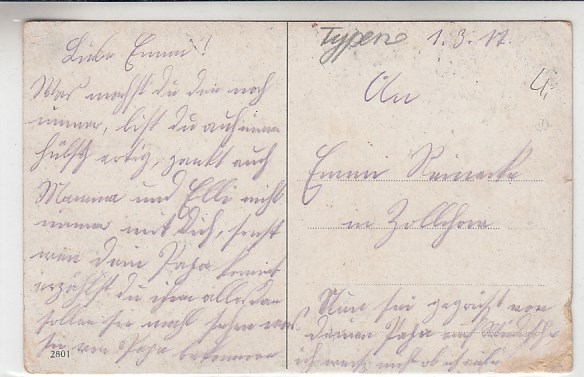 Liebe Emmi!
Was machst Du den noch
immer, bist Du auch immer
hübsch artig, zankt auch
Mamma und Elli nicht
immer mit Dich, sonst
wen dein Papa kommt
erzählst du ihm alles, dan
sollen sie mal sehen was
sie von Papa bekommen
2801
Typen 1.3.17.
An
Emmi Reinecke
in Zollchow
Nun sei gegrüßt von
deinen Papa
ich weis nicht ob